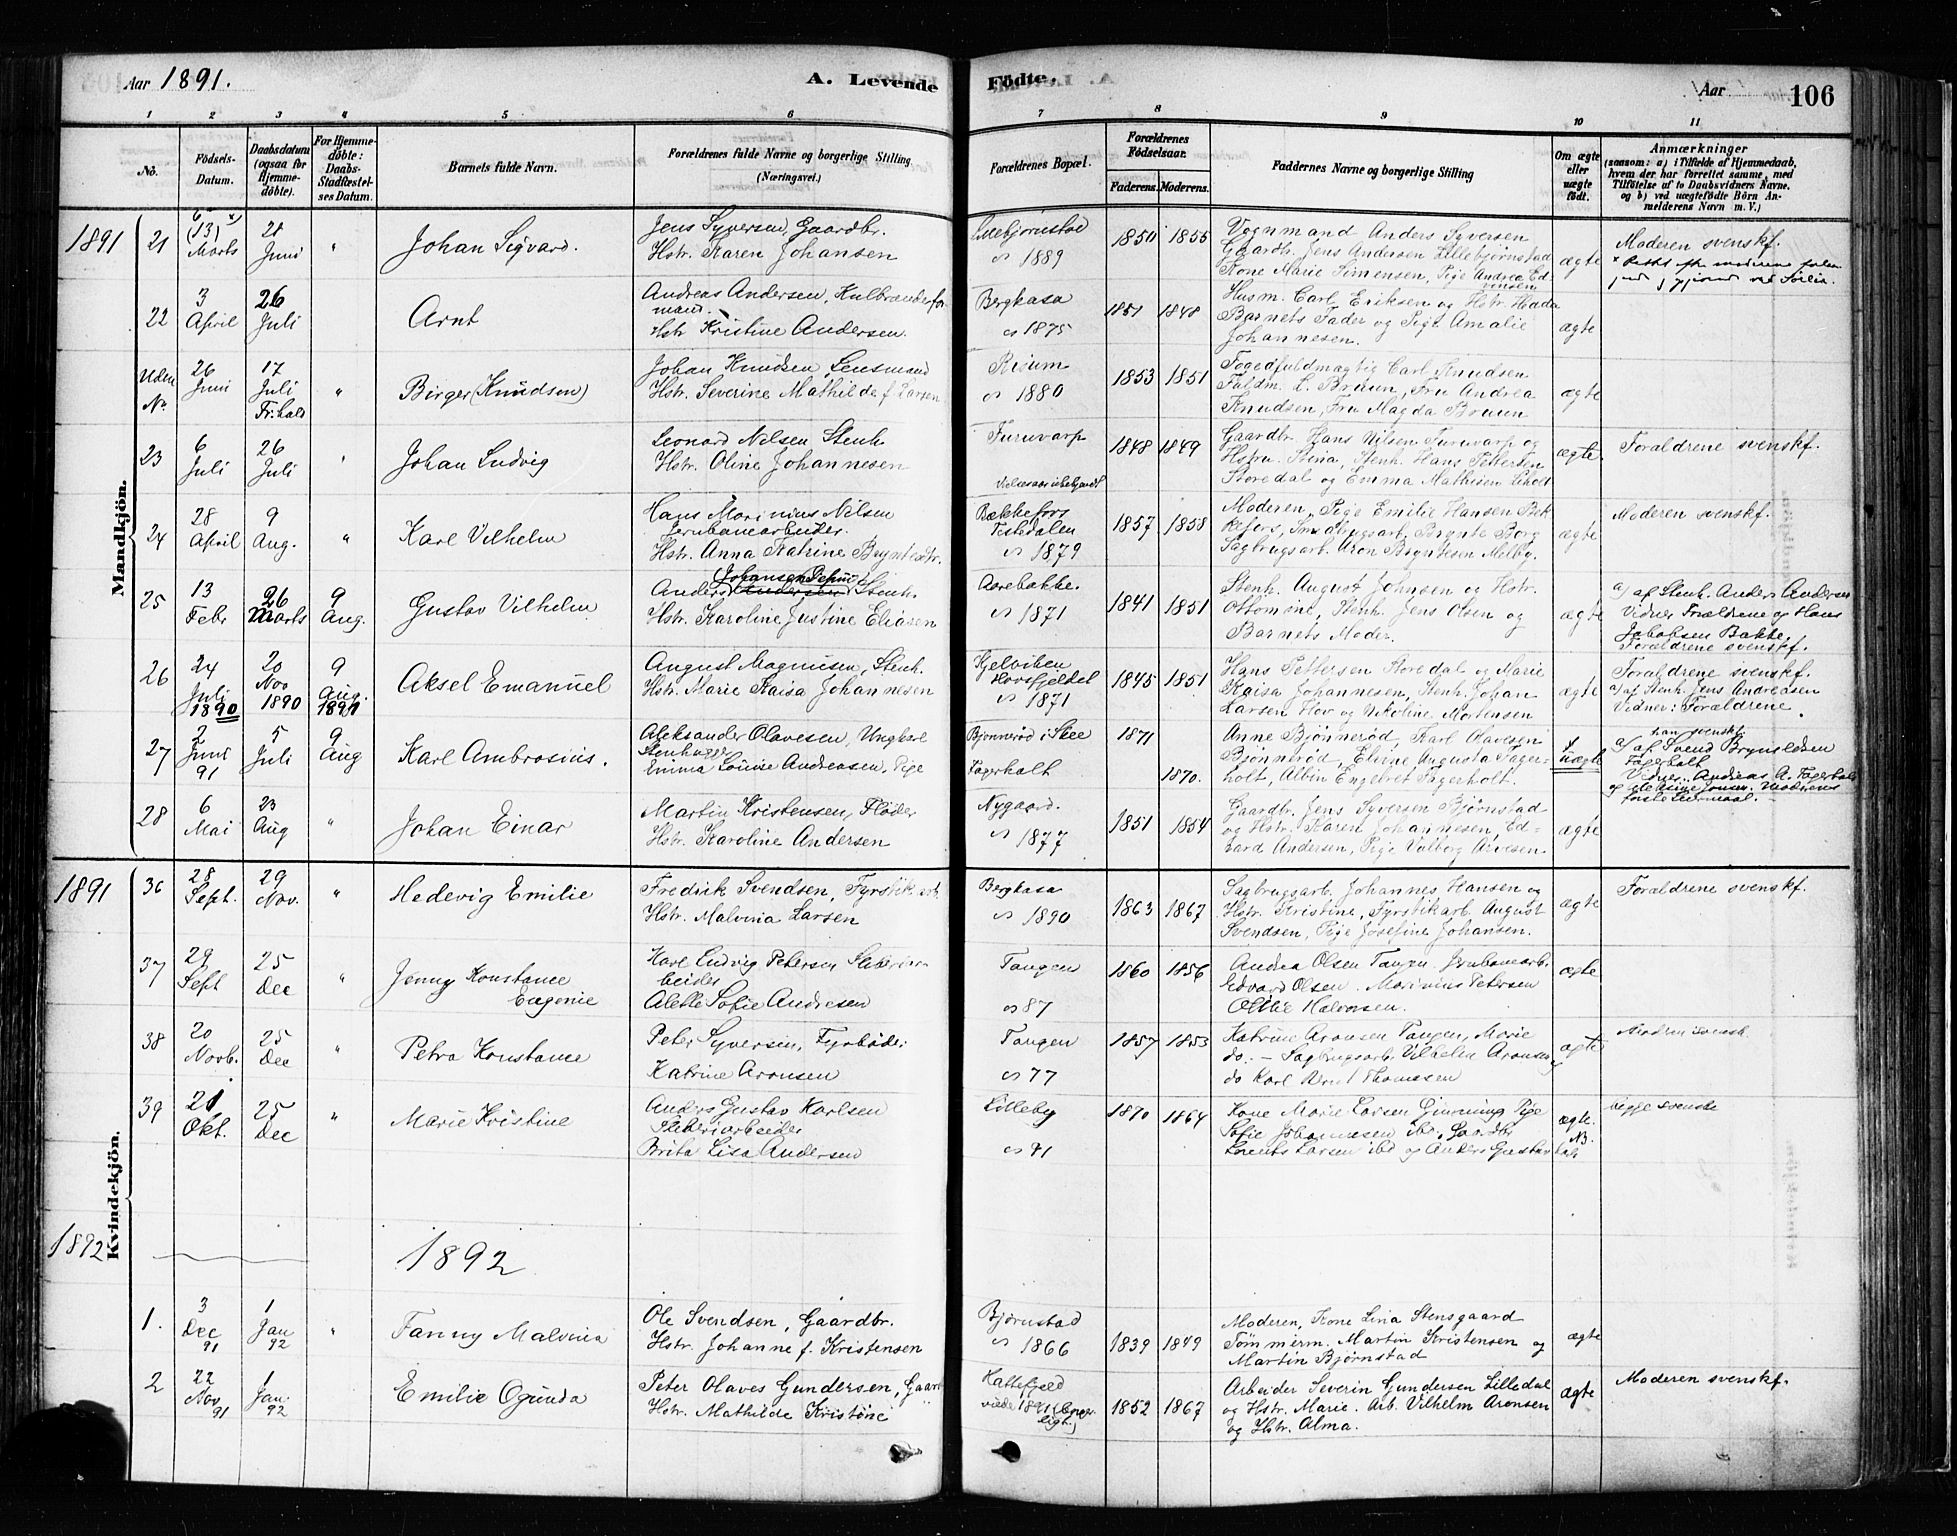 Aar 1891.
A. Levende
Fødte.
Aar
106
1
2
3
4
5
6
7
8
9
10
11
No.
Fødsels-
Datum.
Daabsdatum
(ogsaa for
Hjemme-
døbte).
For Hjemme-
døbte:
Daabs-
Stadfæstel-
ses Datum.
Barnets fulde Navn.
Forældrenes fulde Navne og borgerlige Stilling
(Næringsvei.)
Forældrenes Bopæl.
Forældrenes
Fødselsaar.
Faderens.
Moderens.
Faddernes Navne og borgerlige Stilling
Om ægte
eller
uægte
født.
Anmærkninger
(saasom: a) i Tilfælde af Hjemmedaab,
hvem der har forrettet samme, med
Tilføielse af to Daabsvidners Navne.
og b) ved uægtefødte Børn An-
melderens Navn m. V.)
Mandkjön.
1891
21
13) Marts
21 Juni
"
Johan Sigvard.
Jens Syversen, Gaardbr.
Hstr. Karen Johansen
Lillebjørnstad
1889
1850
1855
Vognmand Anders Syversen
Gaardbr. Jens Andersen Lillebjørnstad
Kone Marie Simensen, Pige Andrea Ed-
vinsen
ægte
Moderen svenskf.
22
3 April
26 Juli
"
Arnt
Andreas Andersen, Kulbrænderfor-
mand.
Hstr Kristine Andersen.
Berghasa
1875
1851
1848
Husm. Carl Eriksen og Hstr. Hada
Barnets Fader og Pige Amalie
Johannesen.
ægte
Uden
No.
26 Juni
17 Juli
Fr.hald
"
Birger (Knudsen)
Johan Knudsen, Lensmand
Hstr. Severine Mathilde f. Larsen
Risum
1880
1853
1851
Fogedfuldmægtig Carl Knudsen
Fuldm. L. Bruun, Fru Andrea
Knudsen, Fru Magda Bruun
ægte
23
6 Juli
26 Juli
"
Johan Ludvig
Leonard Nilsen Stenh.
Hstr. Oline Johannesen
Furuvarp
1848
1849
Gaardbr. Hans Nilsen Furuvarp og
Hstru Stina, Stenh. Hans Pettersen
Storedal og Emma Mathisen Liholt
ægte.
Forældrene svenskf.
24
28 April
9 Aug.
"
Karl Vilhelm
Hans Marinius Nilsen
Jernbanearbeider.
Hstr. Anna Katrine Bryntesdtr.
Bækkefors
Tistedalen
1879
1857
1858
Moderen, Pige Emilie Hansen Bek-
kefors, Smedbrugsarb. Brynte Borg
Sagbrugsarb. Aron Bryntesen Melby.
ægte
Moderen svenskf.
25
13 Febr
26 Marts
9 Aug.
Gustav Vilhelm
Anders Stenh.
Hstr. Karoline Justine Eliasen
Aarebakke.
1871
1841
1851
Stenh. August Johnsen og Hstr.
Ottomine, Stenh. Jens Olsen og
Barnets Moder.
ægte
a) af Stenh. Anders Andersen
Vidner Forældrene og Hans
Jakobsen Bakke.
Forældrene svenskf.
26
24 Juli 1890
20 Nov 1890
9 Aug. 1891
Aksel Emanuel
August Magnusen, Stenh.
Hstr. Marie Kaisa Johannesen
Hjelviken
Hovsfjeldet
1871
1845
1851
Hans Pettersen Storedal og Marie
Kaisa Johannesen, Stenh. Johan
Larsen Hov og Nikoline Mortensen
ægte
Forældrene svenskf.
a) af Stenh. Jens Andreasen
Vidner: Forældrene
27
2 Juni 91
5 Juli
9 Aug
Karl Ambrosius.
Aleksander Olavesen, Ungkarl
Stenhugger
Emma Louise Andreasen, Pige
Bjønnerød i Skee
Fagerholt
1871
1870.
Anne Bjønnerød, Karl Olavesen
Bjønnerød, Eline Augusta Fager-
holt, Albin Engebret Fagerholt.
uægte
han svensk
a) af Svend Brynildsen
Fagerholt
Vidner: Andreas A. Fagerholt
Moderens
første Leiermaal.
28
6 Mai
23 Aug
"
Johan Einar
Martin Kristensen, Fløder
Hstr. Karoline Andersen
Nygaard.
1877
1851
1854
Gaardbr. Jens Syversen Bjørnstad
og Hstr. Karen Johannesen, Ed-
vard Andersen, Pige Valborg Arvesen
ægte
Kvindekjön.
1891
36
28 Sept.
29 Nov.
"
Hedevig Emilie
Fredrik Svendsen, Fyrstikarb.
Hstr. Malvina Larsen
Berghasa
1890
1863
1867
Sagbrugsarb. Johannes Hansen og
Hstr. Kristine, Fyrstikarb. August
Svendsen, Pige Josefine Johansen.
ægte
Forældrene svenskf.
37
29 Sept
25 Dec
"
Jenny Konstance
Eugenie
Karl Ludvig Petersen
beider
Alette Sofie Andresen
Tangen
87
1860
1856
Andrea Olsen Tangen, Jernbanearb.
Edvard Olsen. Marinius Petersen
Ollie Halvorsen.
ægte
38
20 Novb.
25 Dec
"
Petra Konstance
Peter Syversen, Fyrbøder
Katrine Aronsen
Tangen
77
1857
1853
Katrine Aronsen Tangen, Marie
do. — Sagbrugsarb. Vilhelm Aronsen
do Karl Arnt Thomesen
ægte
Modren svensk
39
21 Okt.
25 Dec
"
Marie Kristine
Anders Gustav Karlsen
Sliberiarbeider
Brita Lisa Andersen
Lilleby
91
1870
1864
Kone Marie Larsen Gimming Pige
Sofie Johannesen ibd, Gaardbr
Lorents Larsen ibd og Anders Gustav
ægte.
begge svenske
1892
1892
1.
3 Dec 91
1 Jan 92
"
Fanny Malvina
Ole Svendsen, Gaardbr.
Hstr. Johanne f. Kristensen
Bjørnstad
1866
1839
1849
Moderen, Kone Lina Stensgaard
Tømmerm. Martin Kristensen og
Martin Bjørnstad
ægte
2
22 Nov 91
1 Jan. 92
Emilie Ogunda
Peter Olaves Gundersen, Gaard
Hstr. Mathilde Kristine
Kattefjeld
1852
1867
Arbeider Severin Gundersen Lilledal
og Hstr. Marie. Arb. Vilhelm Aronsen
og Hstr. Alma.
ægte
Moderen svenskf.